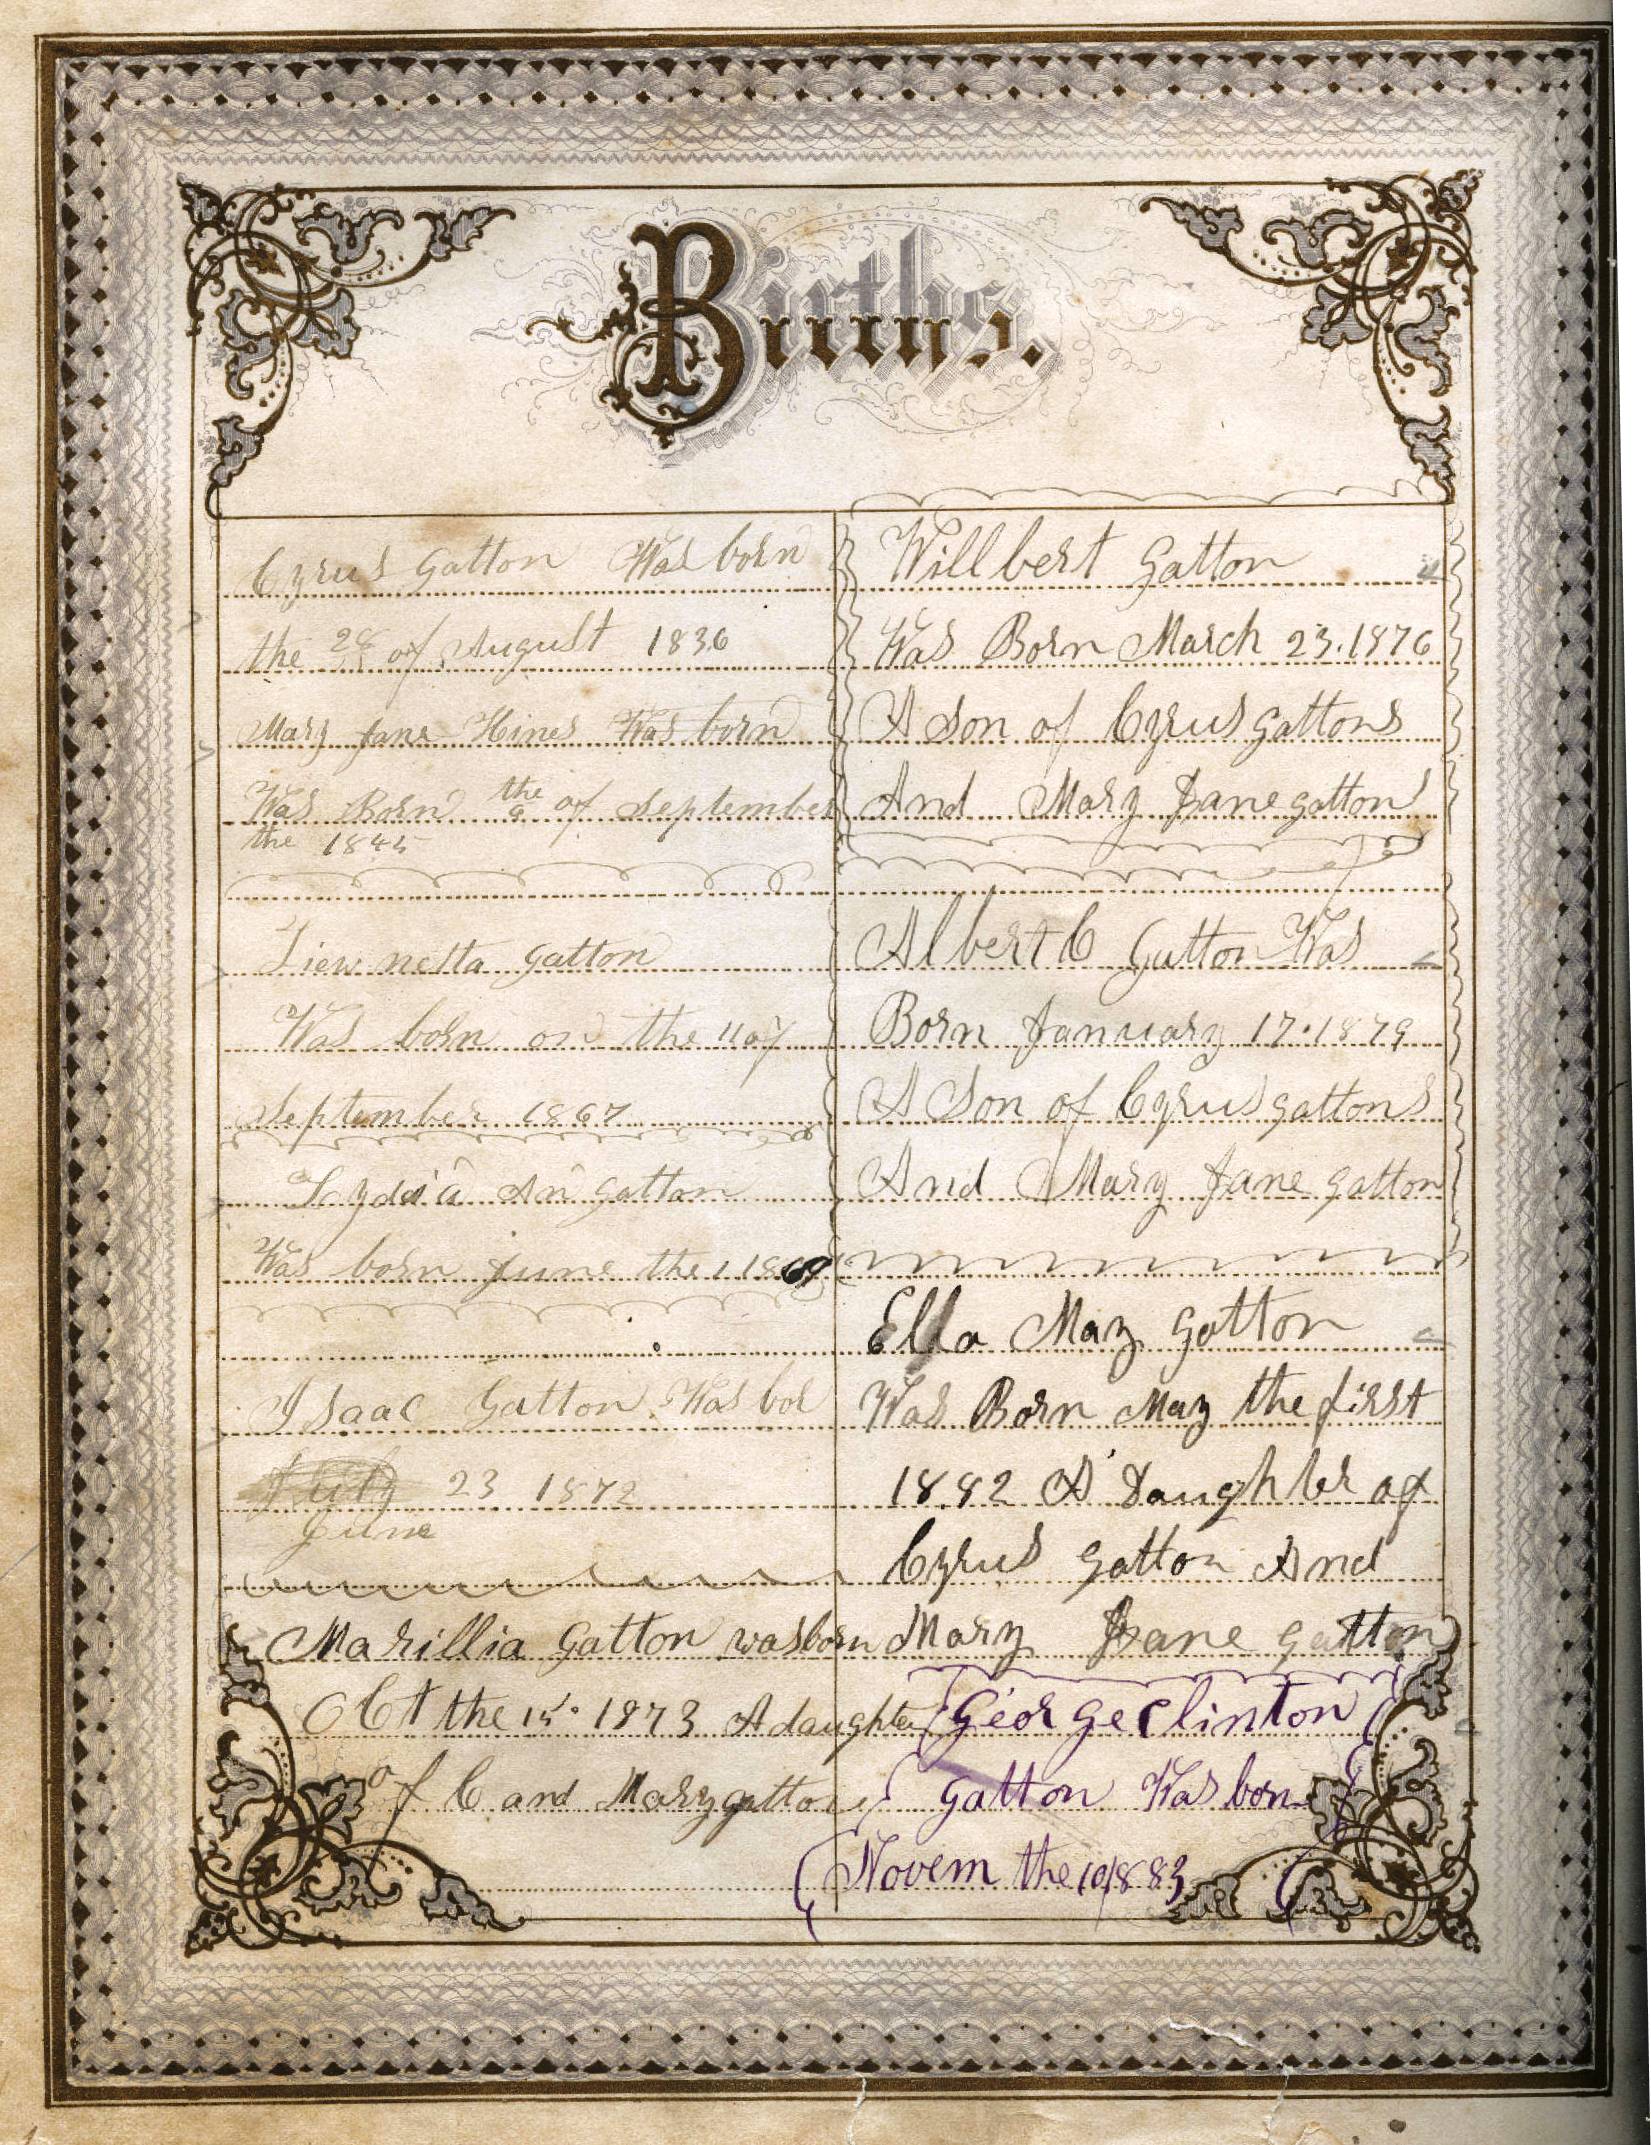 Births.
Cyrus Gatton Was born
the 28 of August 1836
Mary Jane Hines Was born
Was Born the 9 of September
the 1845
netta gatton
Was born on the 11 of
September 1867
Lydia An gatton
Was born June the 1 1869
Isaac Gatton Was bor
July 23 1872
June
Marillia Gatton was born
Oct the 15. 1873 A daughter
of C and Mary gatton
Willbert Gatton
Was Born March 23.1876
A Son of Cyrus gattons
And Mary Jane gatton
Albert C Gatton Was
Born January 17.1879
A Son of Cyrus gattons
And Mary Jane gatton
Ella May Gotton
Was Born May the first
1882 A Daughter of
Cyrus Gatton And
Mary Jane gatton
George Clinton
gatton Was born
Novem the 10 1883